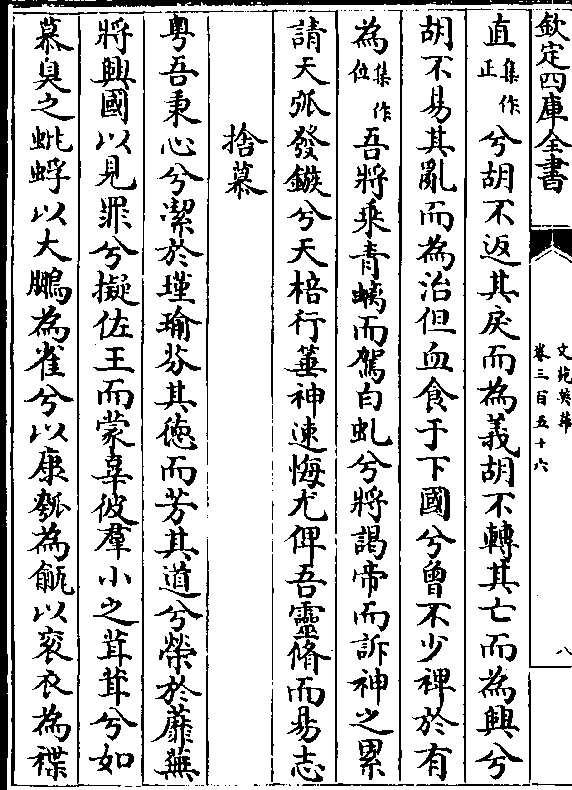 欽定四庫全書
文苑英華
卷三百五十六
八
直集作正兮胡不返其戾而為義胡不轉其亡而為興兮
胡不易其亂而為治但血食于下國兮曾不少裨於有
為集作位吾將乘青螭而駕白虬兮將謁帝而訴神之累
請天弧發鏃兮天棓行箠神速悔尤俾吾靈脩而易志
捨慕
粤吾秉心兮潔於瑾瑜芬其德而芳其道兮榮於蘼蕪
將興國以見罪兮擬佐王而蒙辜彼羣小之茸茸兮如
慕臭之蚍蜉以大鵬為雀兮以康瓠為甂以衮衣為褋